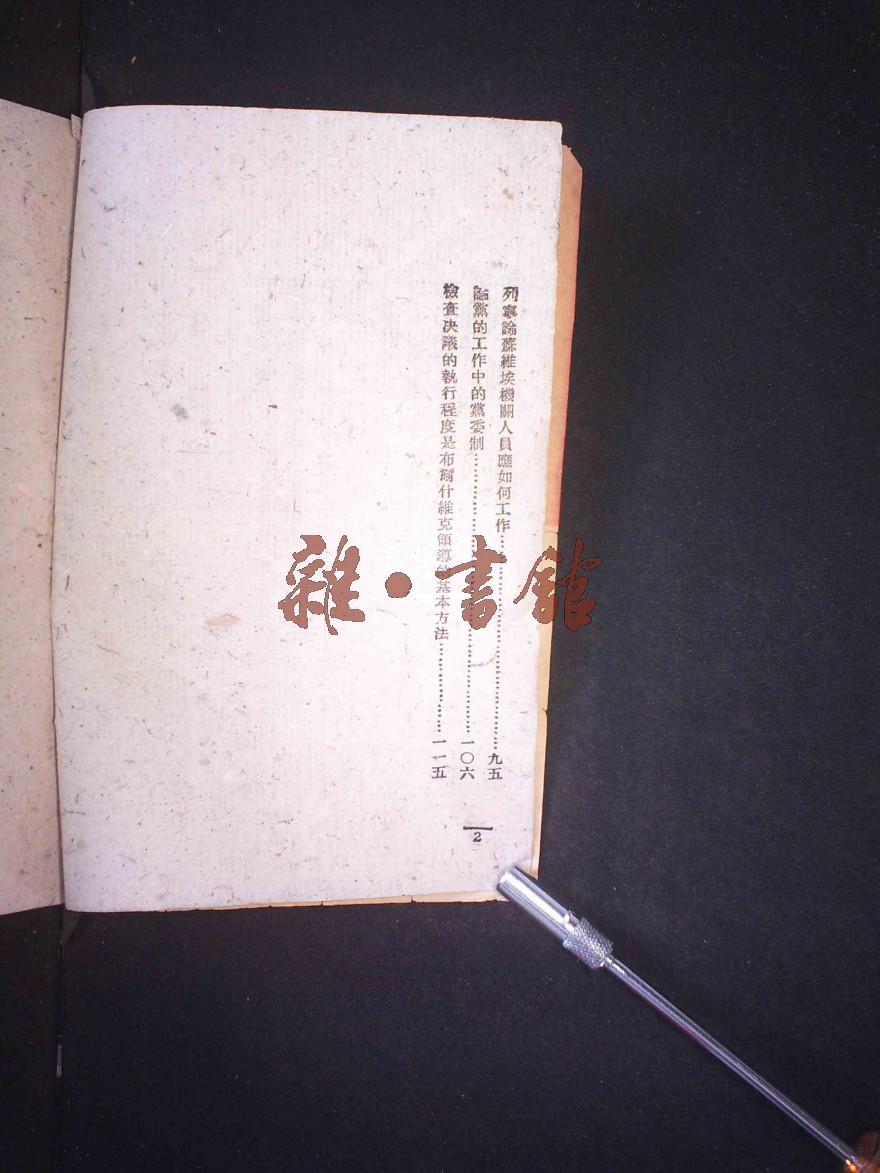 列寧論蘇維埃機關人員應如何工作……………………九五
論黨的工作中的黨委制……………………………一〇六
檢查決議的執行程度是布爾什維克領導的基本方法…………一一五
2
雜•書館